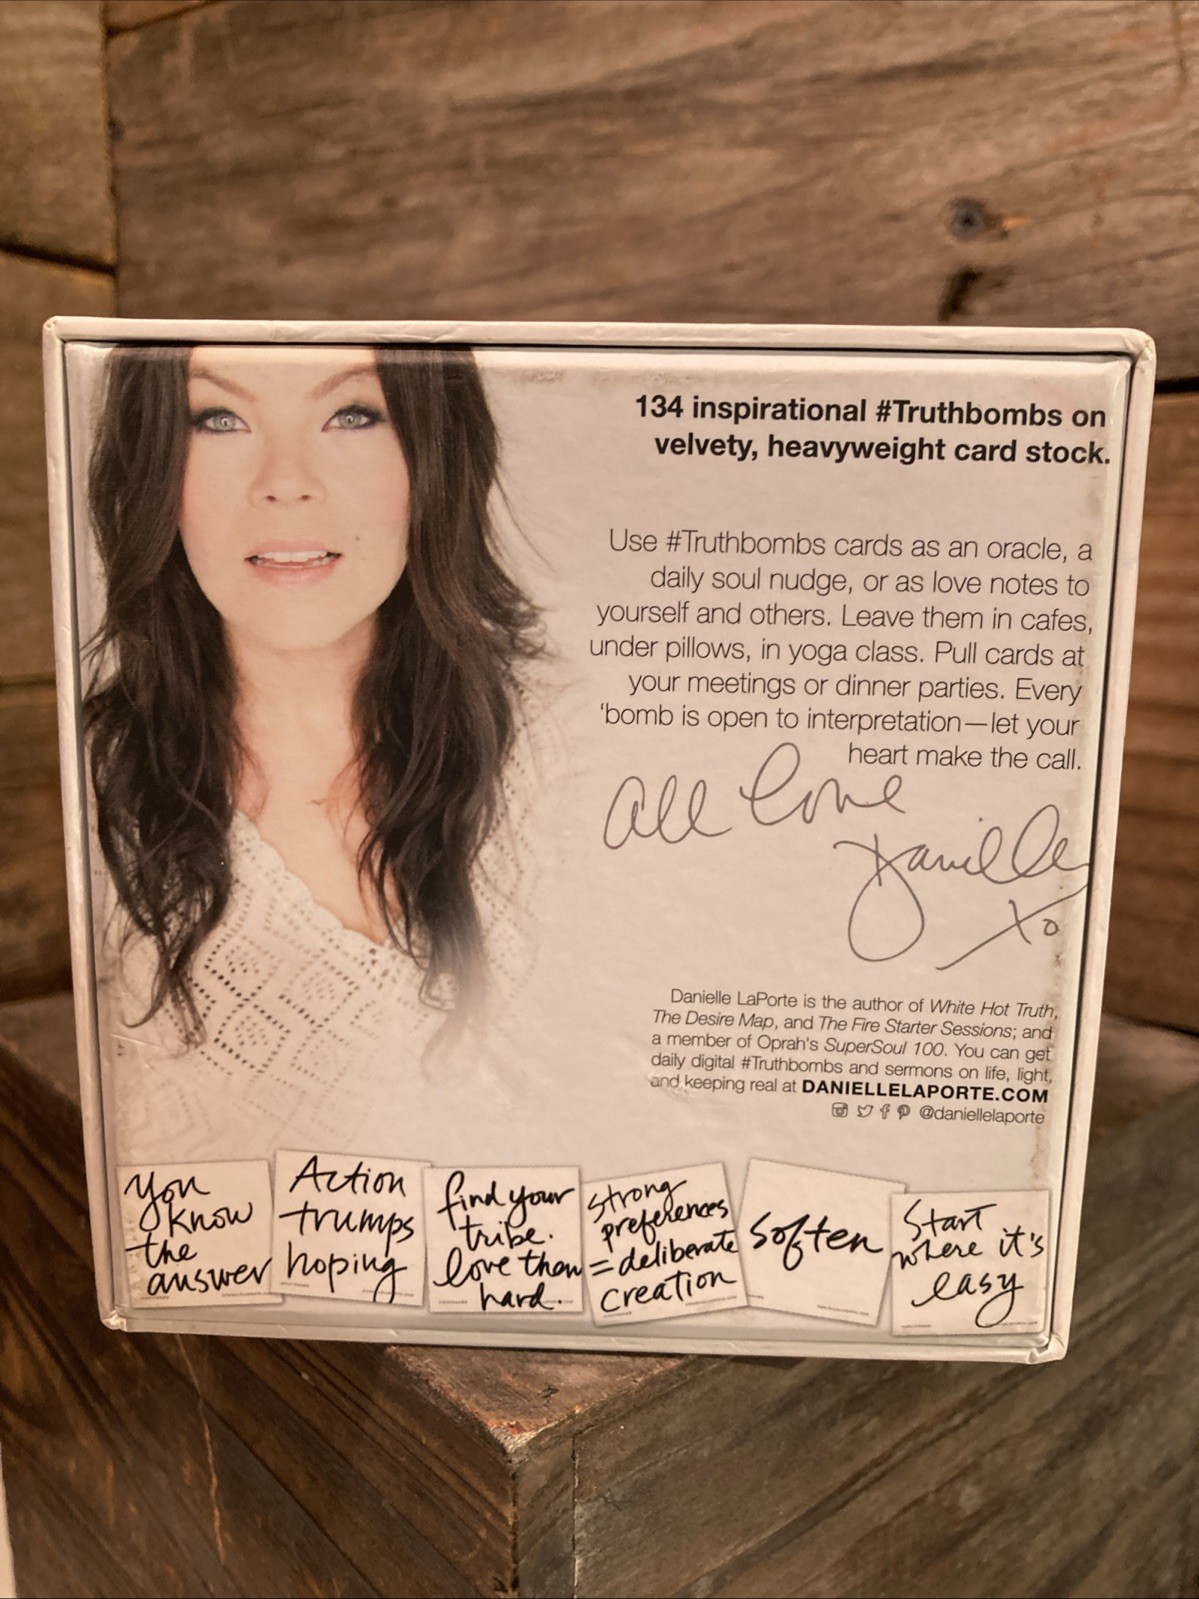 134 inspirational #Truthbombs on
velvety, heavyweight card stock.
Use #Truthbombs cards as an oracle, a
daily soul nudge, or as love notes to
yourself and others. Leave them in cafes,
under pillows, in yoga class. Pull cards at
your meetings or dinner parties. Every
‘bomb is open to interpretation—let your
heart make the call.
all love
Danielle
xo
Danielle LaPorte is the author of White Hot Truth,
The Desire Map, and The Fire Starter Sessions; and
a member of Oprah's SuperSoul 100. You can get
daily digital #Truthbombs and sermons on life, light,
and keeping real at DANIELLELAPORTE.COM
@daniellelaporte
You
know
the
answer
Action
trumps
hoping
find your
tribe.
love them
hard.
strong
preferences
= deliberate
creation
soften
Start
where it's
easy